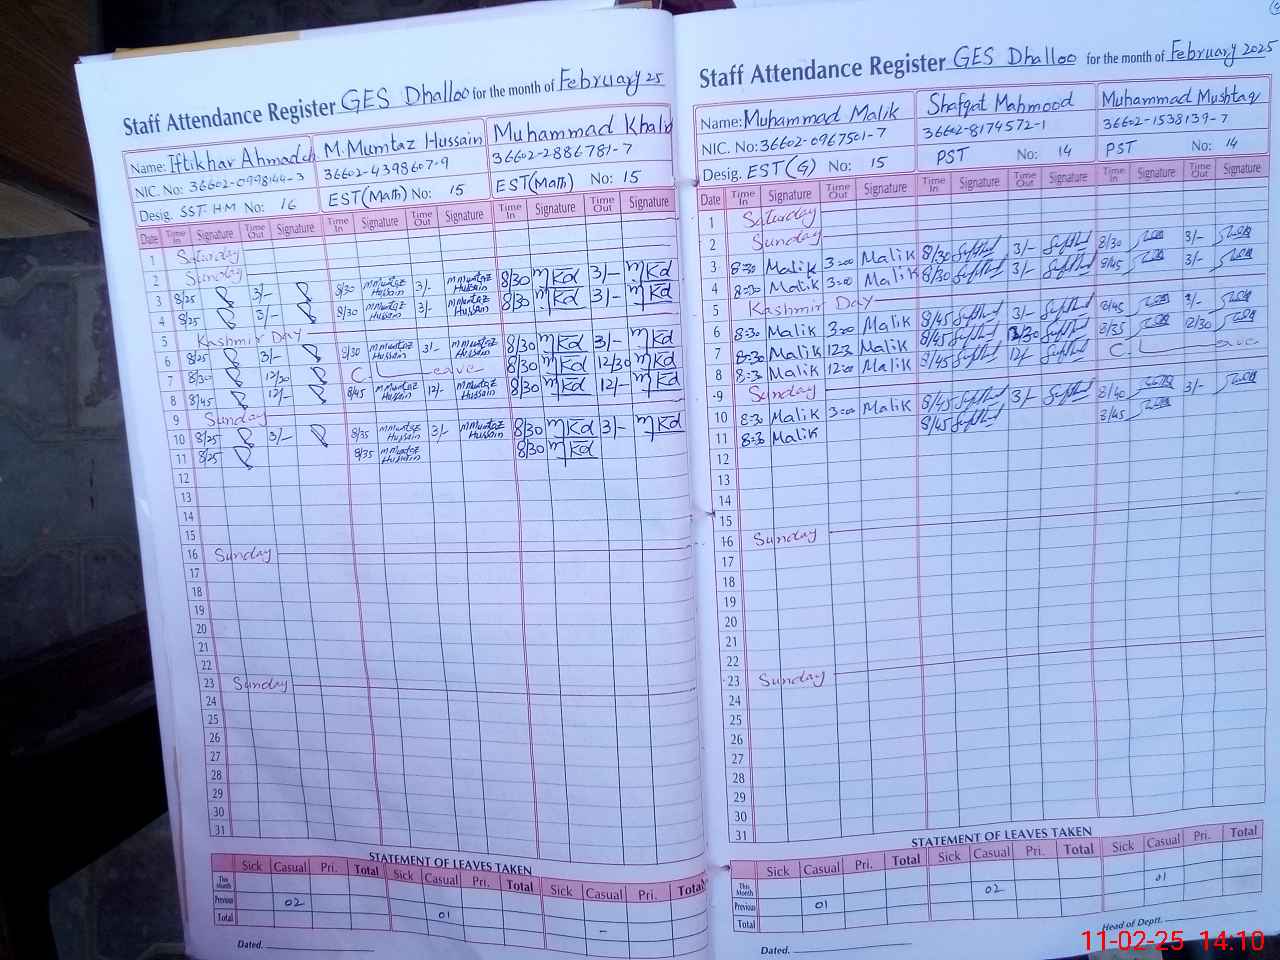 Staff Attendance Register GES Dhalloo for the month of February 25
Name: Iftikhar Ahmad M.Mumtaz Hussain Muhammad Khalid
NIC. No: 36602-0998144-3 36602-4398607-9 36602-2886781-7
Desig. SST-HM No: 16 EST(Math) No: 15 EST(Math) No: 15
Date Time In Signature Time Out Signature Time In Signature Time Out Signature Time In Signature Time Out Signature
1 Saturday
2 Sunday
3 8/25 3/- 8/30 MMumtaz Hussain 3/- MMumtaz Hussain 8/30 mkd 3/- mkd
4 8/25 3/- 8/30 MMumtaz Hussain 3/- MMumtaz Hussain 8/30 mkd 3/- mkd
5 Kashmir Day
6 8/25 3/- 8/30 MMumtaz Hussain 3/- MMumtaz Hussain 8/30 mkd 3/- mkd
7 8/30 12/30 C. Leave 8/30 mkd 12/30 mkd
8 8/45 12/- 8/45 MMumtaz Hussain 12/- MMumtaz Hussain 8/30 mkd 12/- mkd
9 Sunday
10 8/25 3/- 8/35 MMumtaz Hussain 3/- MMumtaz Hussain 8/30 mkd 3/- mkd
11 8/25 8/35 MMumtaz Hussain 8/30 mkd
12
13
14
15
16 Sunday
17
18
19
20
21
22
23 Sunday
24
25
26
27
28
29
30
31
STATEMENT OF LEAVES TAKEN
Sick Casual Pri. Total Sick Casual Pri. Total Sick Casual Pri. Total
This Month
Previous 02 01 -
Total
Dated.
Staff Attendance Register GES Dhalloo for the month of February 2025
Name: Muhammad Malik Shafqat Mahmood Muhammad Mushtaq
NIC. No: 36602-0967501-7 36602-8174572-1 36602-1538139-7
Desig. EST(G) No: 15 PST No: 14 PST No: 14
Date Time In Signature Time Out Signature Time In Signature Time Out Signature Time In Signature Time Out Signature
1 Saturday
2 Sunday
3 8=30 Malik 3=00 Malik 8/30 3/- 8/30 3/-
4 8=30 Malik 3=00 Malik 8/30 3/- 8/45 3/-
5 Kashmir Day
6 8=30 Malik 3=00 Malik 8/45 3/- 8/45 3/-
7 8=30 Malik Malik 8/45 8/35 12/30
8 8=30 Malik 12=00 Malik 8/45 12/- C. Leave
9 Sunday
10 8=30 Malik 3=00 Malik 8/45 3/- 8/40 3/-
11 8=30 Malik 8/45 8/45
12
13
14
15
16 Sunday
17
18
19
20
21
22
23 Sunday
24
25
26
27
28
29
30
31
STATEMENT OF LEAVES TAKEN
Sick Casual Pri. Total Sick Casual Pri. Total Sick Casual Pri. Total
This Month
Previous 01 02 01
Total
Dated. Head of Deptt.
11-02-25 14:10